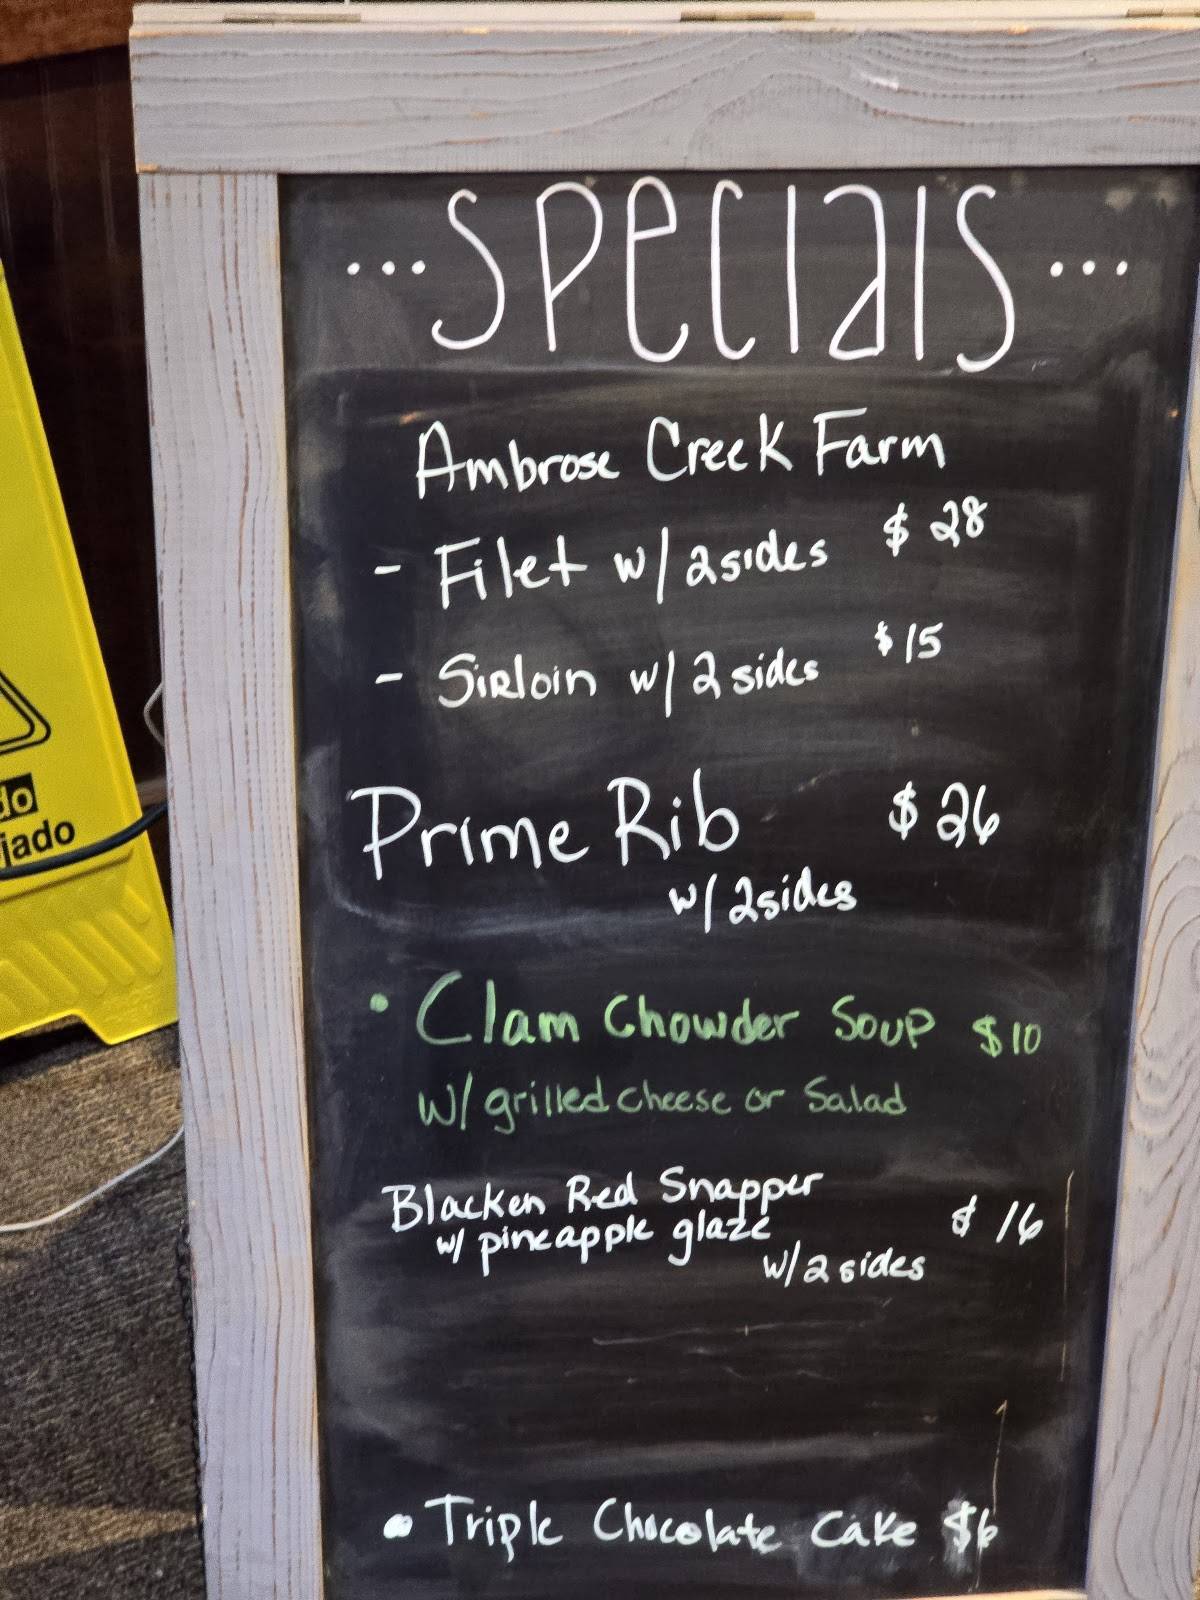 ...Specials...
Ambrose Creek Farm
- Filet w/ 2 sides $28
- Sirloin w/ 2 sides $15
Prime Rib $26
w/ 2 sides
• Clam Chowder Soup $10
w/ grilled cheese or Salad
Blacken Red Snapper
w/ pineapple glaze $16
w/ 2 sides
• Triple Chocolate Cake $6
do
jado